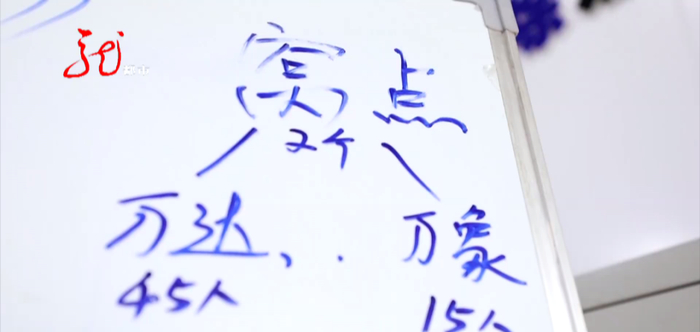 窝点
2个
万达、. 万象
45人 15人